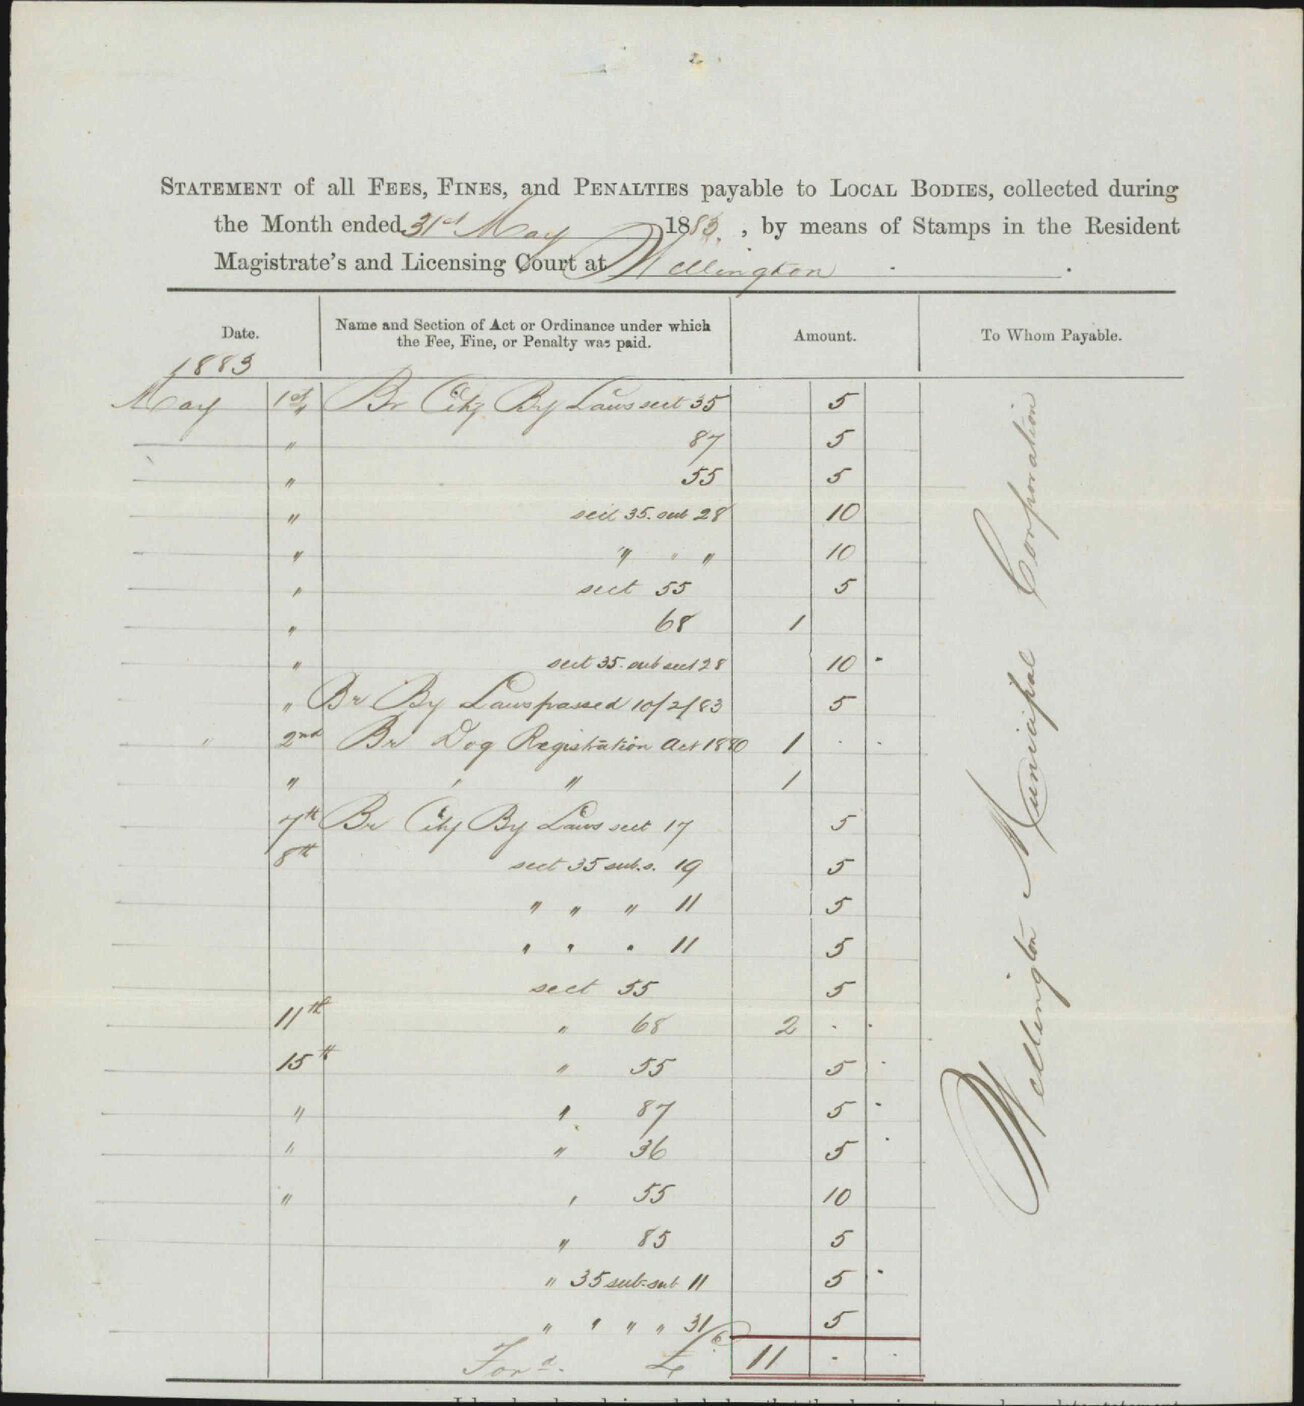 STATEMENT of all FEES, FINES, and PENALTIES payable to LOCAL BODIES, collected during
the Month ended 31st May 1883, by means of Stamps in the Resident
Magistrate's and Licensing Court at Wellington.
Date. Name and Section of Act or Ordinance under which the Fee, Fine, or Penalty was paid. Amount. To Whom Payable.
1883
May 1st Br City By Laws sect 35 5
" 87 5
" 55 5
" sect 35. sub 28 10
" " " " 10
" sect 55 5
" 68 1
" sect 35. sub sect 28 10 .
" Br By Laws passed 10/2/83 5
" 2nd Br Dog Registration Act 1880 1 . .
" " " 1
7th Br City By Laws sect 17 5
8th sect 35 sub. s. 19 5
" " " 11 5
" " " 11 5
sect 55 5
11th " 68 2 . .
15th " 55 5 .
" " 87 5 .
" " 36 5 .
" " 55 10
" 85 5
" 35 sub-sub 11 5 .
" " " " 31/6 5
Ford. £ 11 . .
Wellington Municipal Corporation